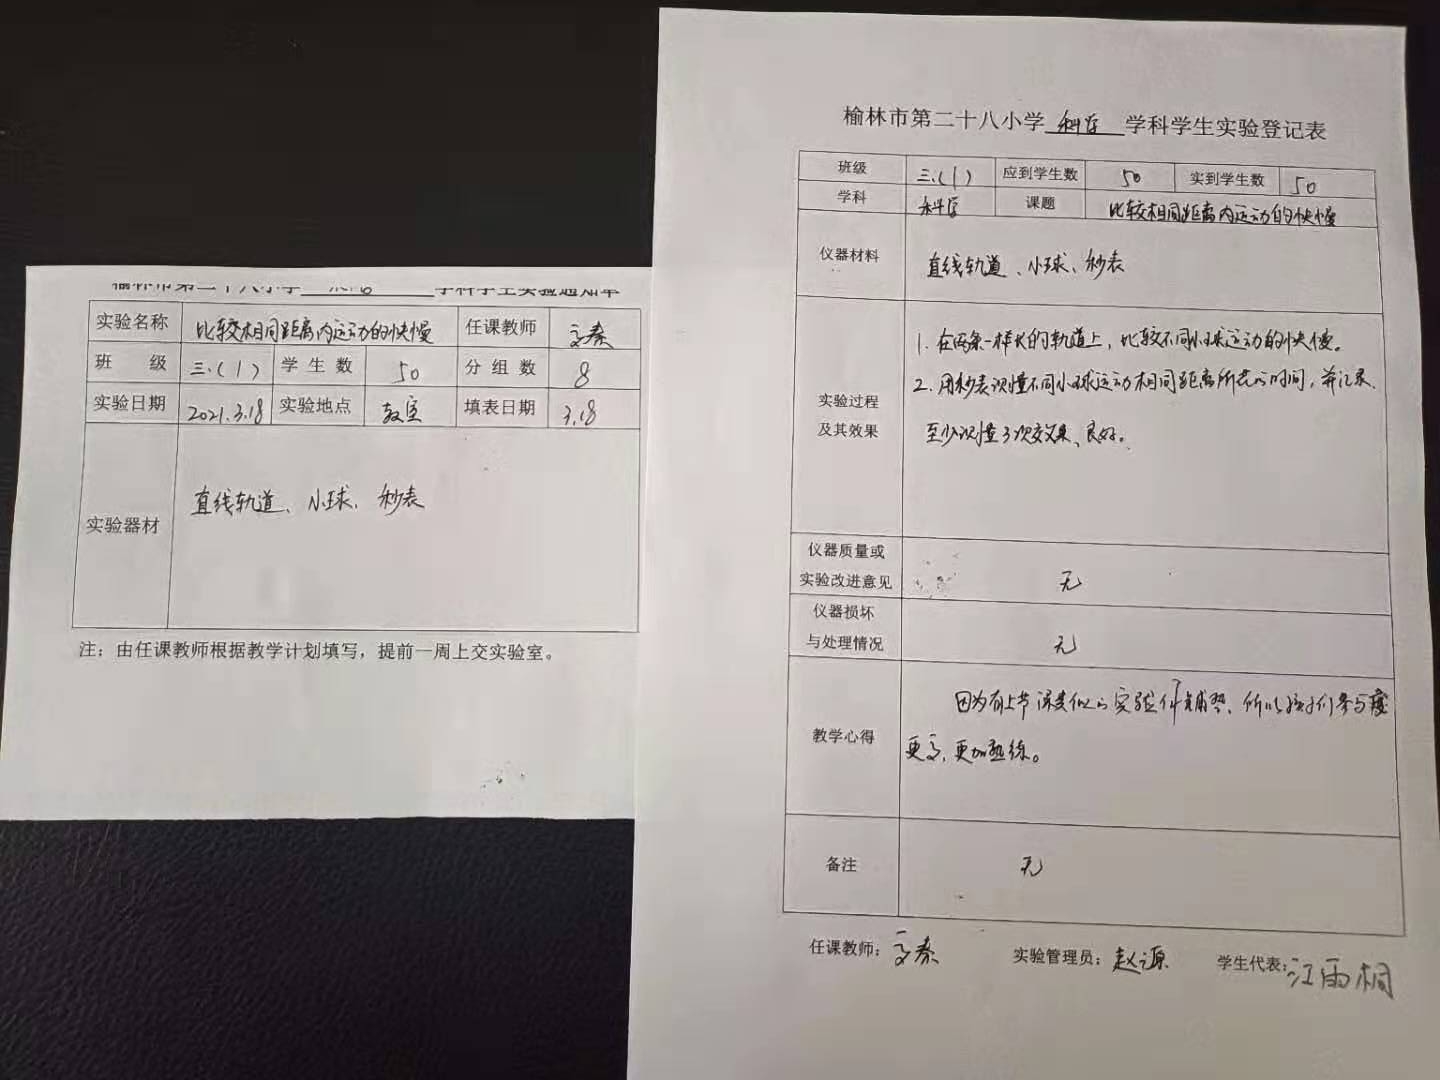 榆林市第二十八小学 学科学生实验通知单
实验名称 比较相同距离内运动的快慢 任课教师 文秦
班 级 三.(1) 学 生 数 50 分 组 数 8
实验日期 2021.3.18 实验地点 教室 填表日期 3.18
实验器材 直线轨道、小球、秒表
注：由任课教师根据教学计划填写，提前一周上交实验室。
榆林市第二十八小学 科学 学科学生实验登记表
班级 三.(1) 应到学生数 50 实到学生数 50
学科 科学 课题 比较相同距离内运动的快慢
仪器材料 直线轨道、小球、秒表
1. 在两条一样长的轨道上，比较不同小球运动的快慢。
2. 用秒表测量不同小球运动相同距离所花的时间，并记录.
实验过程
及其效果
至少测量3次效果、良好。
仪器质量或
实验改进意见 无
仪器损坏
与处理情况 无
因为有上节课类似的实验作铺垫、所以孩子们参与度
教学心得
更高，更加熟练。
备注 无
任课教师：文秦 实验管理员：赵源 学生代表：江雨桐